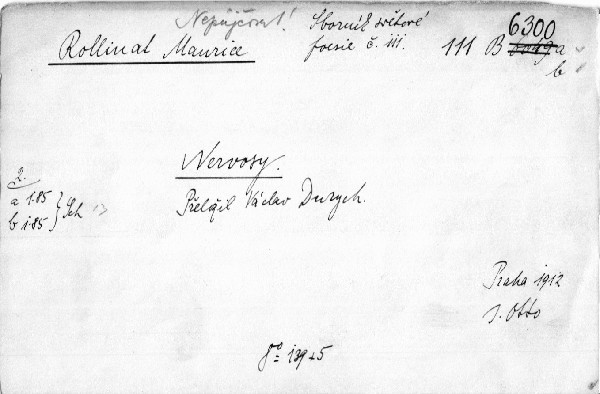 Nepůjčovat!
Sborník světové
poesie č. 111.
6300
Rollinat Maurice
111 B a
b
Nervosy.
Přeložil Václav Durych.
2.
a 1.85
b 1.85
Sch
Praha 1912
J. Otto
8° 139+5